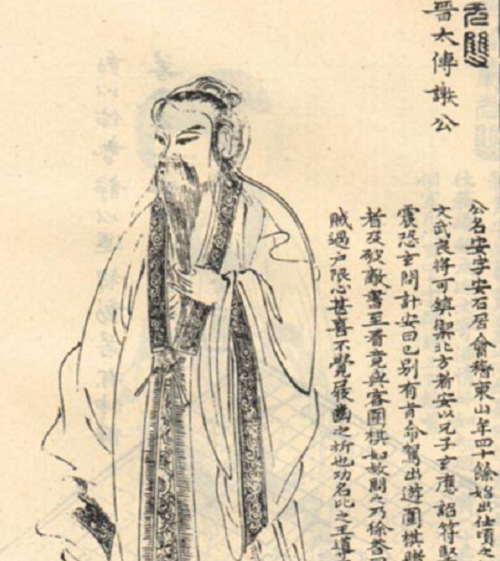 晉太傅謝公
公名安字安石居會稽東山年四十餘始出仕頃之
文武良將可鎮禦北方者安以兄子玄應詔符堅
震恐玄問計安曰已別有旨命駕出遊圍棋賭
者及破敵書至看竟與客圍棋如故問之乃徐答
賊過户限心甚喜不覺屐齒之折也功名比之王導